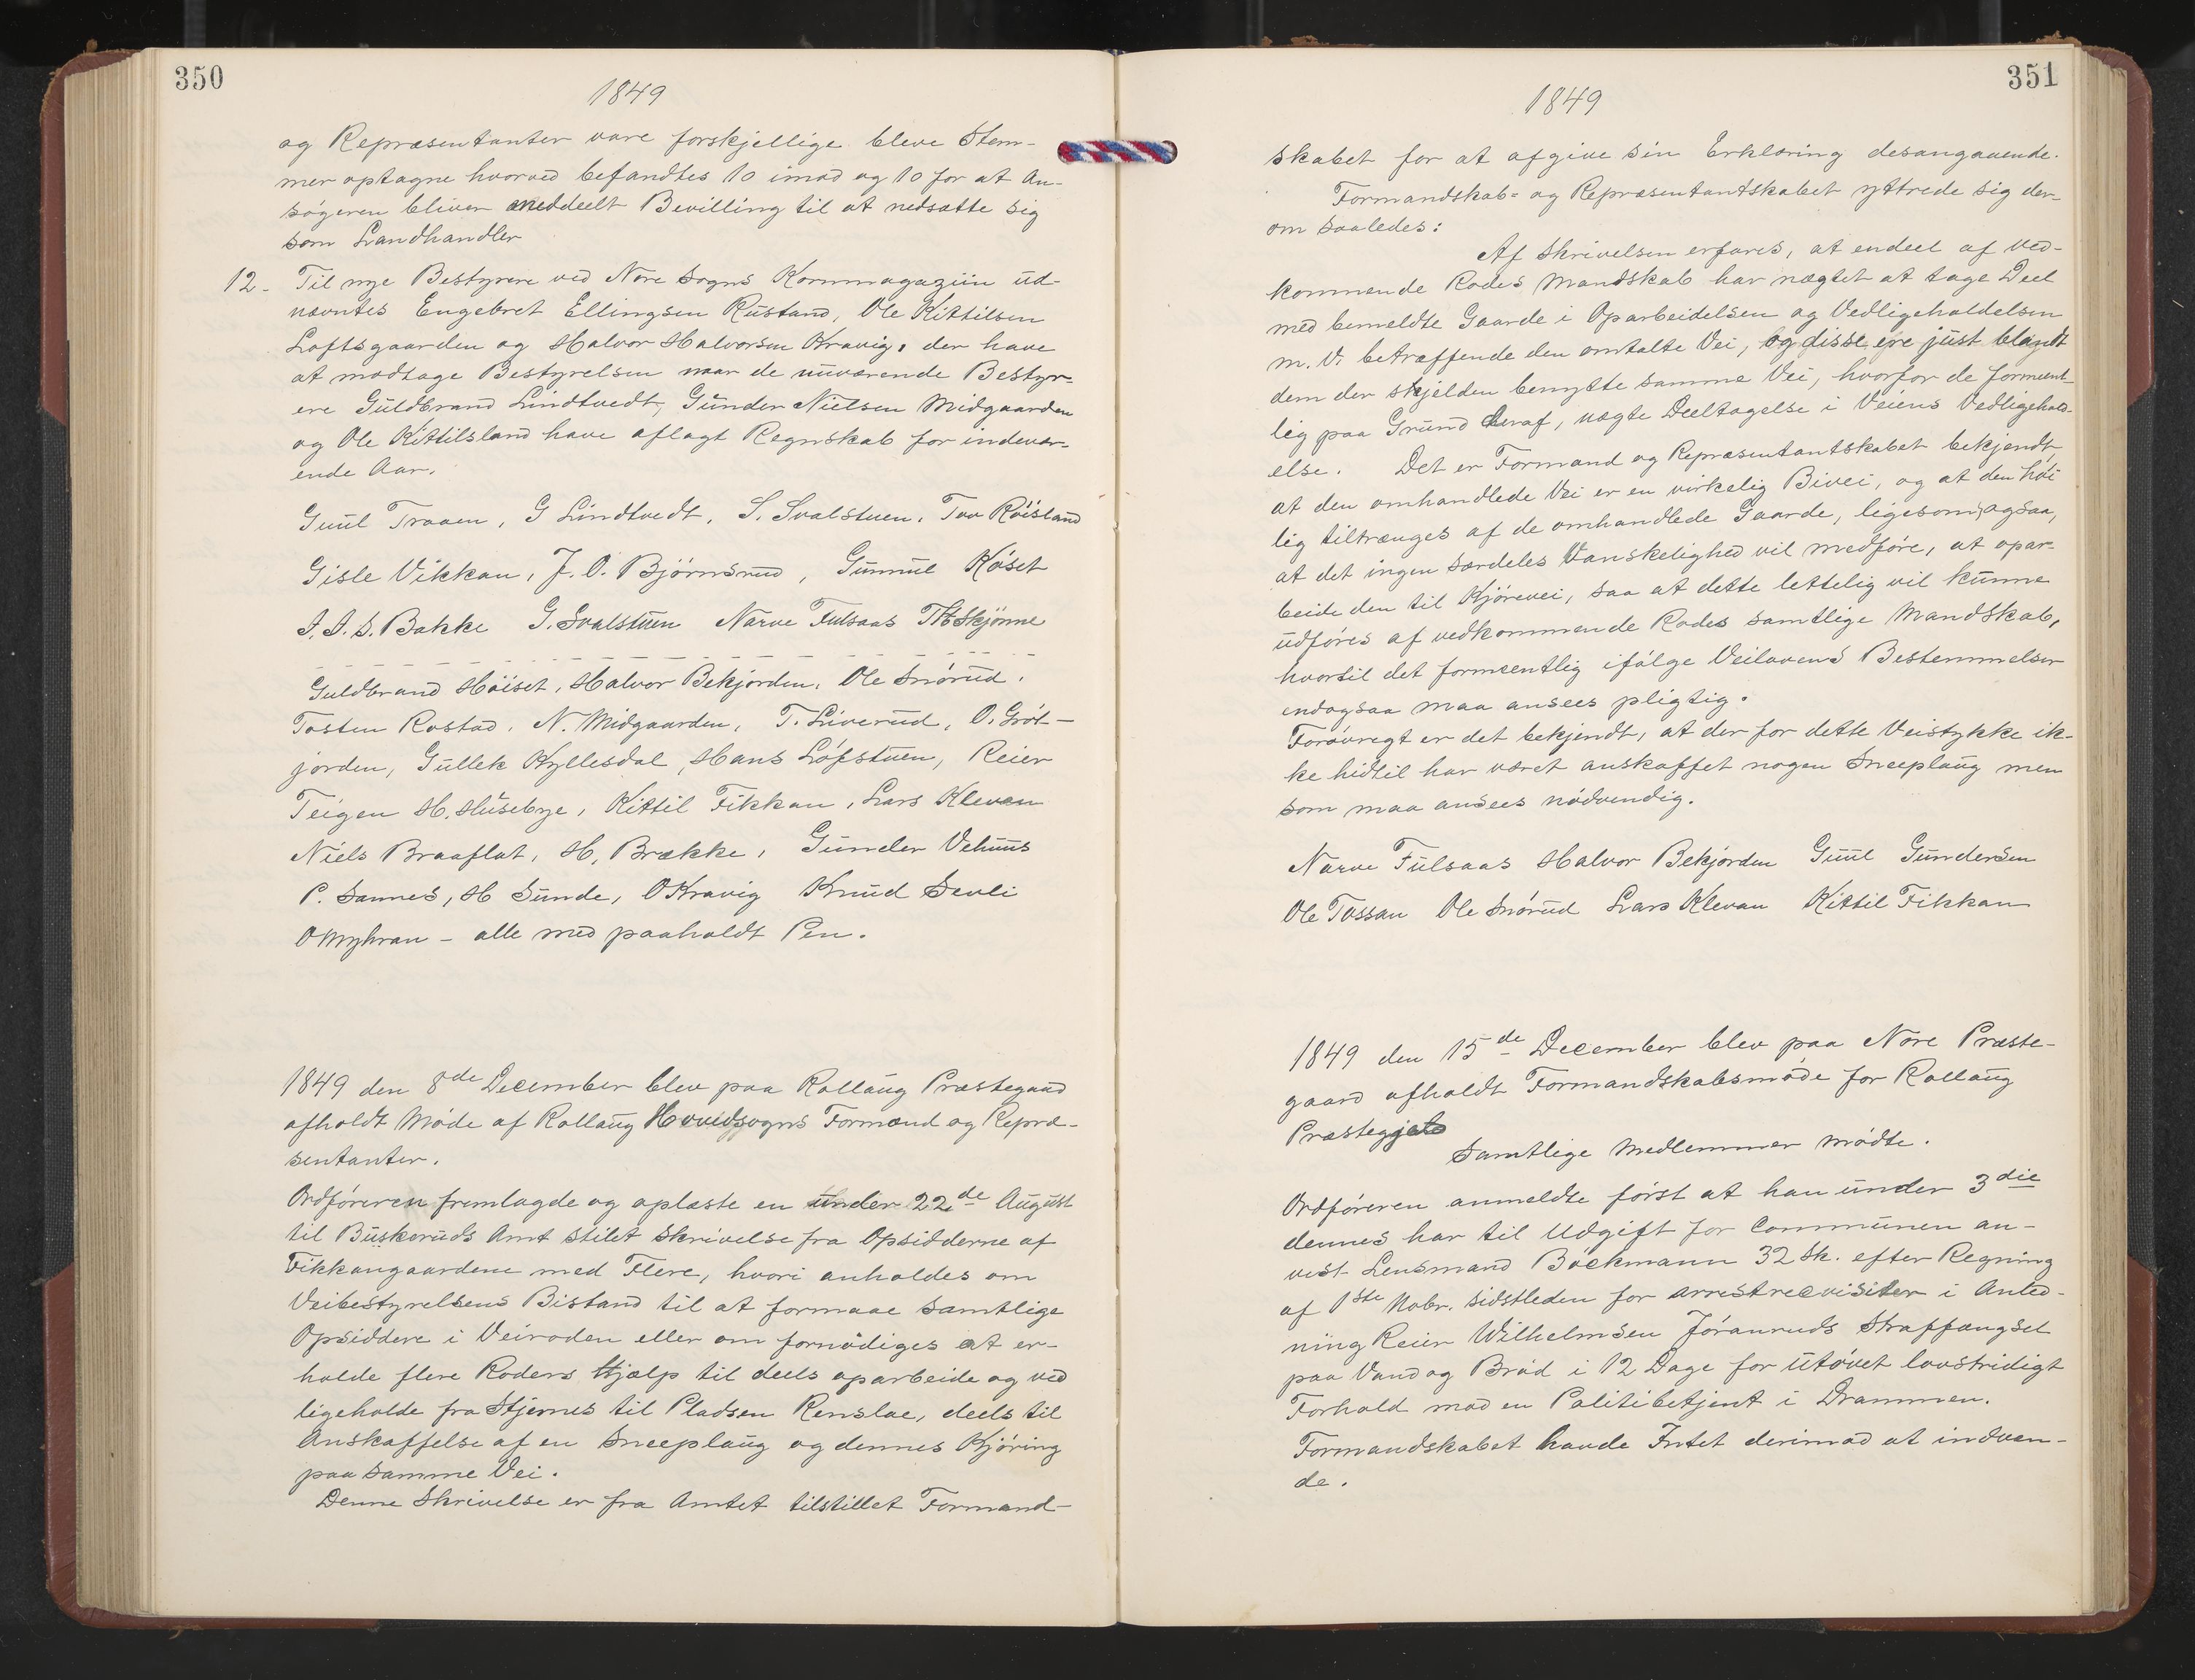 350
1849
og Repræsentanter vare forskjellige bleve Stem-
mer optagne hvorved befandtes 10 imod og 10 for at An-
søgeren bliver meddeelt Bevilling til at nedsætte sig
som Landhandler
12. Til nye Bestyrere ved Nore Sogns Kornmagaziin ud-
nævntes Engebret Ellingsen Rustand, Ole Kittilsen
Loftsgaarden og Halvor Halvorsen Kravig, der have
at modtage Bestyrelsen naar de nuværende Bestyr-
ere Guldbrand Lindtvedt, Gunder Nielsen Midgaarden
og Ole Kittilsland have aflagt Regnskab for indevær-
ende Aar.
Guul Traaen, G Lindtvedt, S. Svalstuen, Tov Røisland
Gisle Vikkan, J. O. Bjørnsrud, Gunnul Køset
A. A. S. Bakke G. Svalstuen Narve Fulsaas T H Skjønne
Guldbrand Høiset, Halvor Bekjorden, Ole Snørud,
Tosten Rostad, N. Midgaarden, T. Liverud, O. Grøt-
jorden, Gullek Kyllesdal, Hans Løfstuen, Reier
Teigen H. Husebye, Kittil Fikkan, Lars Klevan
Niels Braaflat, H. Brække, Gunder Vehuus
P. Sannes, H Sunde, O Kravig Knud Sevli
O Myhran – alle med paaholdt Pen.
1849 den 8de December blev paa Rollaug Præstegaard
afholdt Møde af Rollaug Hovedsogns Formænd og Repræ-
sentanter.
Ordføreren fremlagde og oplæste en under 22de August
til Buskeruds Amt stilet Skrivelse fra Opsidderne af
Fikkangaardene med Flere, hvori anholdes om
Veibestyrelsens Bistand til at formaae samtlige
Opsiddere i Veiroden eller om fornødiges at er-
holde flere Roders Hjælp til deels oparbeide og ved
ligeholde fra Stjernes til Pladsen Renslae, deels til
Anskaffelse af en Sneeplaug og dennes Kjøring
paa samme Vei.
Denne Skrivelse er fra Amtet tilstillet Formand-
351
1849
skabet for at afgive sin Erklæring desangaaende.
Formandskab- og Repræsentantskabet yttrede sig der-
om saaledes:
Af Skrivelsen erfares, at endeel af ved-
kommende Rodes Mandskab har nægtet at tage Deel
med bemeldte Gaarde i Oparbeidelsen og Vedligeholdelsen
m. V. betræffende den omtalte Vei, og disse ere just blandt
dem der skjelden benytte samme Vei, hvorfor de formeent-
lig paa Grund heraf, nægte Deeltagelse i Veiens Vedligehold-
else. Det er Formand og Repræsentantskabet bekjendt,
at den omhandlede Vei er en virkelig Bivei, og at den høi
lig tiltrænges af de omhandlede Gaarde, ligesom, ogsaa,
at det ingen særdeles Vanskelighed vil medføre, at opar-
beide den til Kjørevei, saa at dette lettelig vil kunne
udføres af vedkommende Rodes samtlige Mandskab,
hvortil det formeentlig ifølge Veilovens Bestemmelser
endogsaa maa ansees pligtig.
Forøvregt er det bekjendt, at der for dette Veistykke ik-
ke hidtil har været anskaffet nogen Sneeplaug men
som maa ansees nødvendig.
Narve Fulsaas Halvor Bekjorden Guul Gundersen
Ole Tossan Ole Snørud Lars Klevan Kittil Fikkan
1849 den 15de December blev paa Nore Præste-
gaard afholdt Formandskabsmøde for Rollaug
Præstegjeld
Samtlige Medlemmer mødte.
Ordføreren anmeldte først at han under 3die
dennes har til Udgift for Communen an-
vist Lensmand Bøckmann 32 Sk. efter Regning
af 1ste Nobr. sidstleden for arrestrecvisiter i Anled-
ning Reier Wilhelmsen Jøranruds Straffængsel
paa Vand og Brød i 12 Dage for utøvet lovstridigt
Forhold mod en Politibetjent i Drammen.
Formandskabet havde Intet derimod at indven-
de.